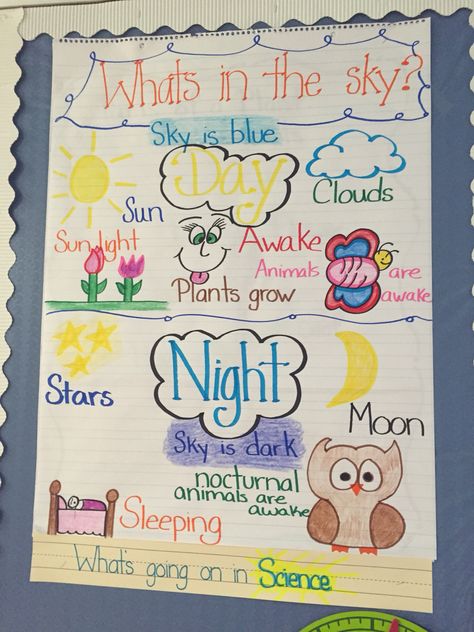 Whats in the sky?
Sky is blue
Day
Clouds
Sun
Sun light
Awake
Animals are awake
Plants grow
Night
Stars
Moon
Sky is dark
nocturnal
animals are
awake
Sleeping
What's going on in Science